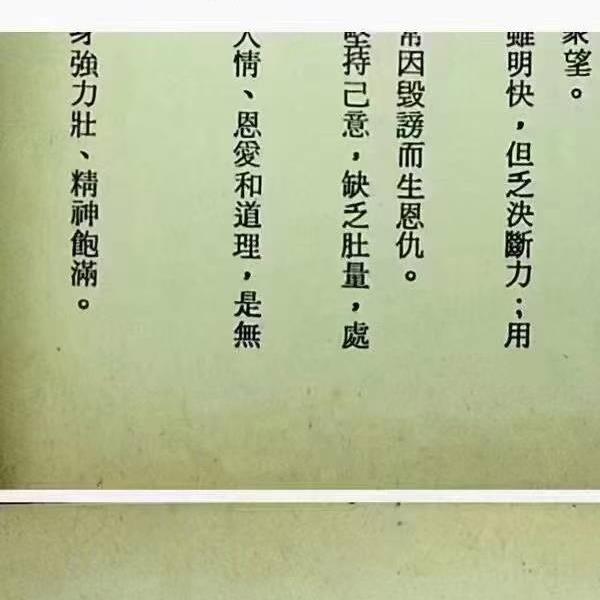 眾望。
雖明快，但乏決斷力；用
常因毀謗而生恩仇。
堅持己意，缺乏肚量，處
人情、恩愛和道理，是無
身強力壯、精神飽滿。